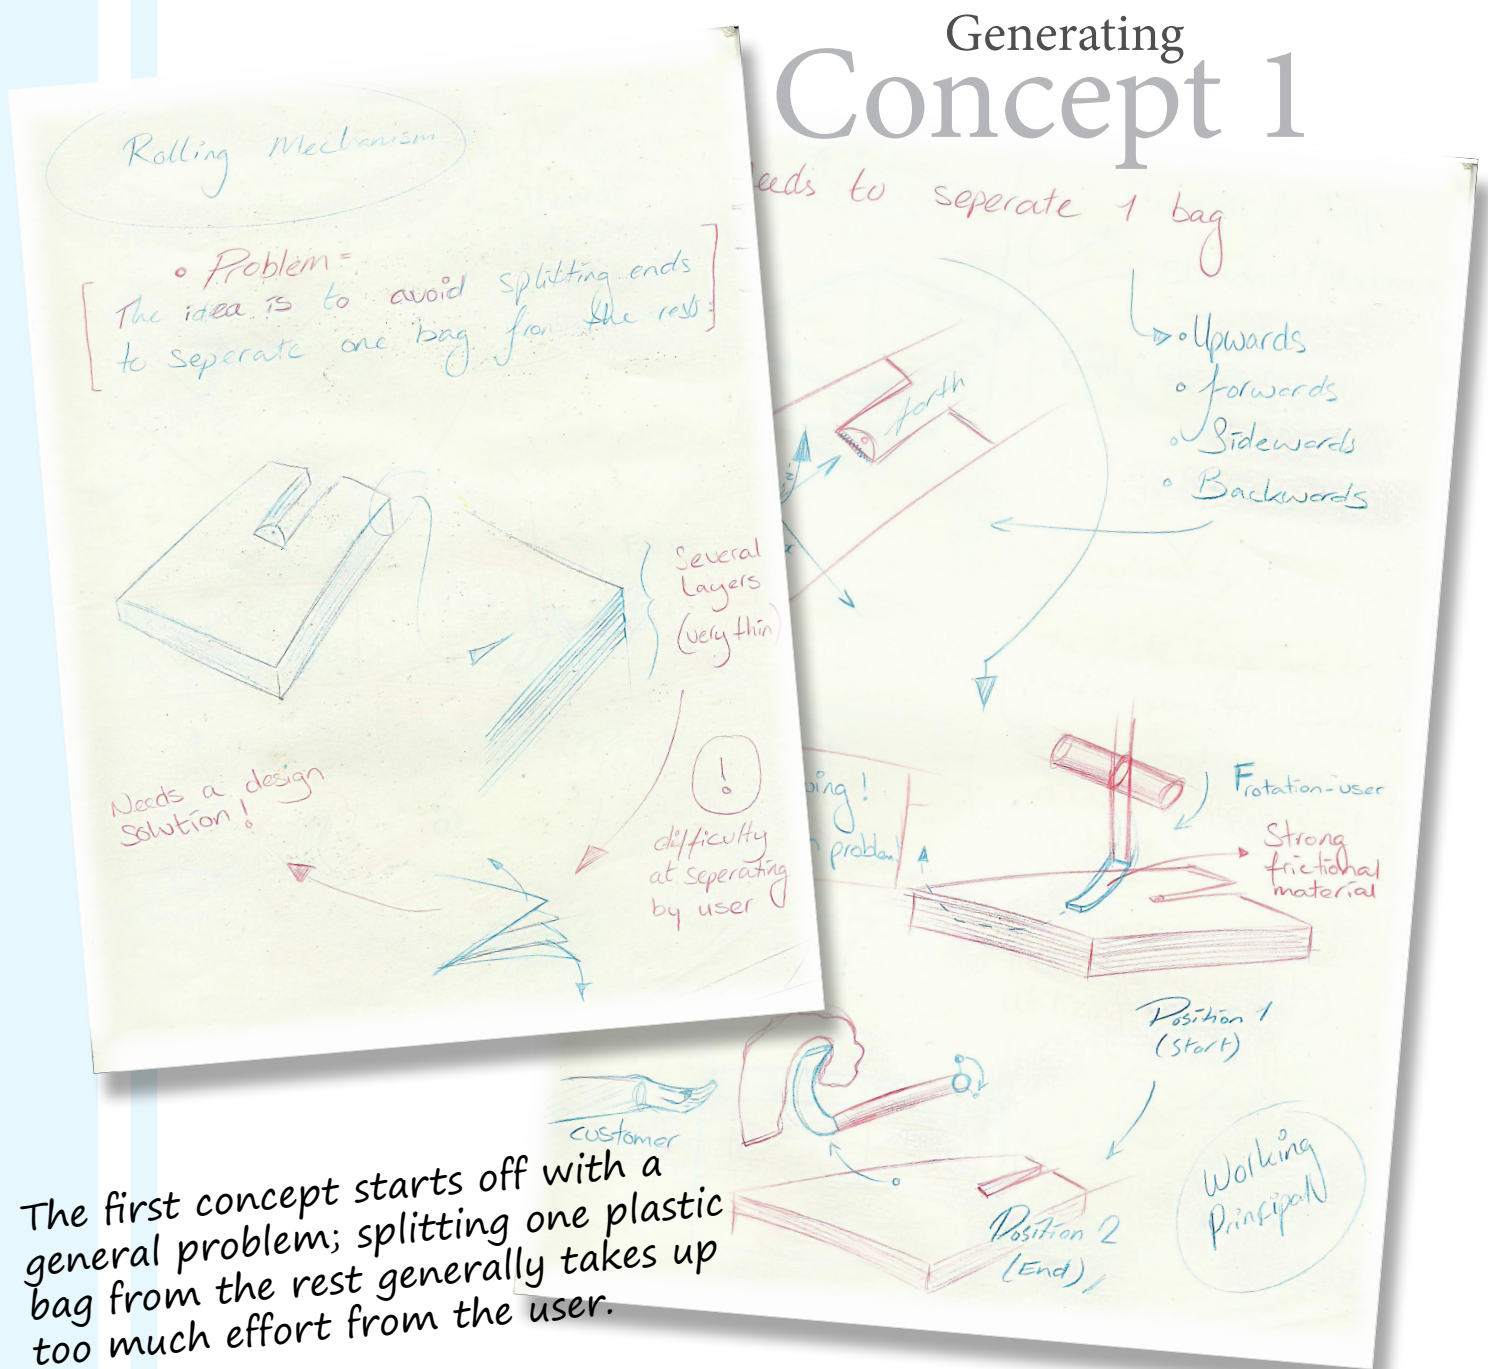 Generating
Concept 1
Rolling Mechanism
Problem =
The idea is to avoid splitting ends
to seperate one bag from the rest.
Several
Layers
(very thin)
!
difficulty
at seperating
by user
Needs a design
solution!
eeds to seperate 1 bag
Upwards
forwards
Sidewards
Backwards
forth
problem!
Frotation-user
Strong
frictional
material
Position 1
(Start)
customer
Position 2
(End)
Working
Principal
The first concept starts off with a
general problem; splitting one plastic
bag from the rest generally takes up
too much effort from the user.